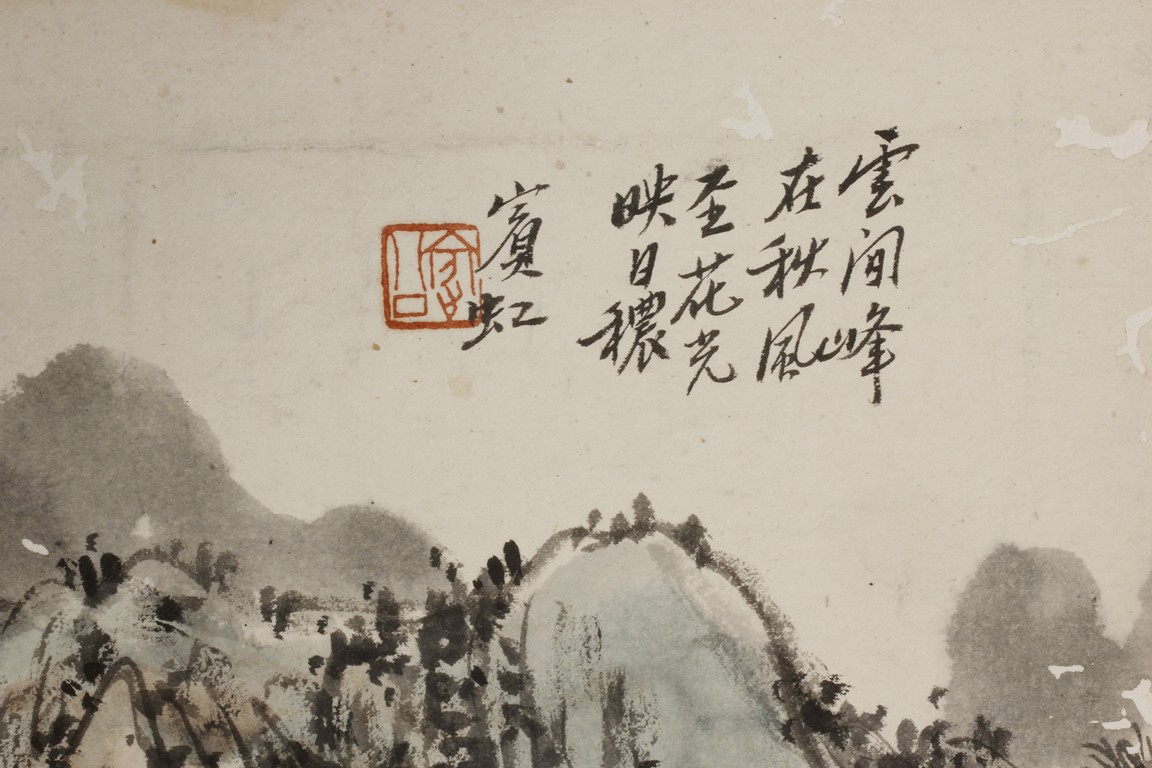 雲間峰
在秋風
圣花光
映日穠
賓虹